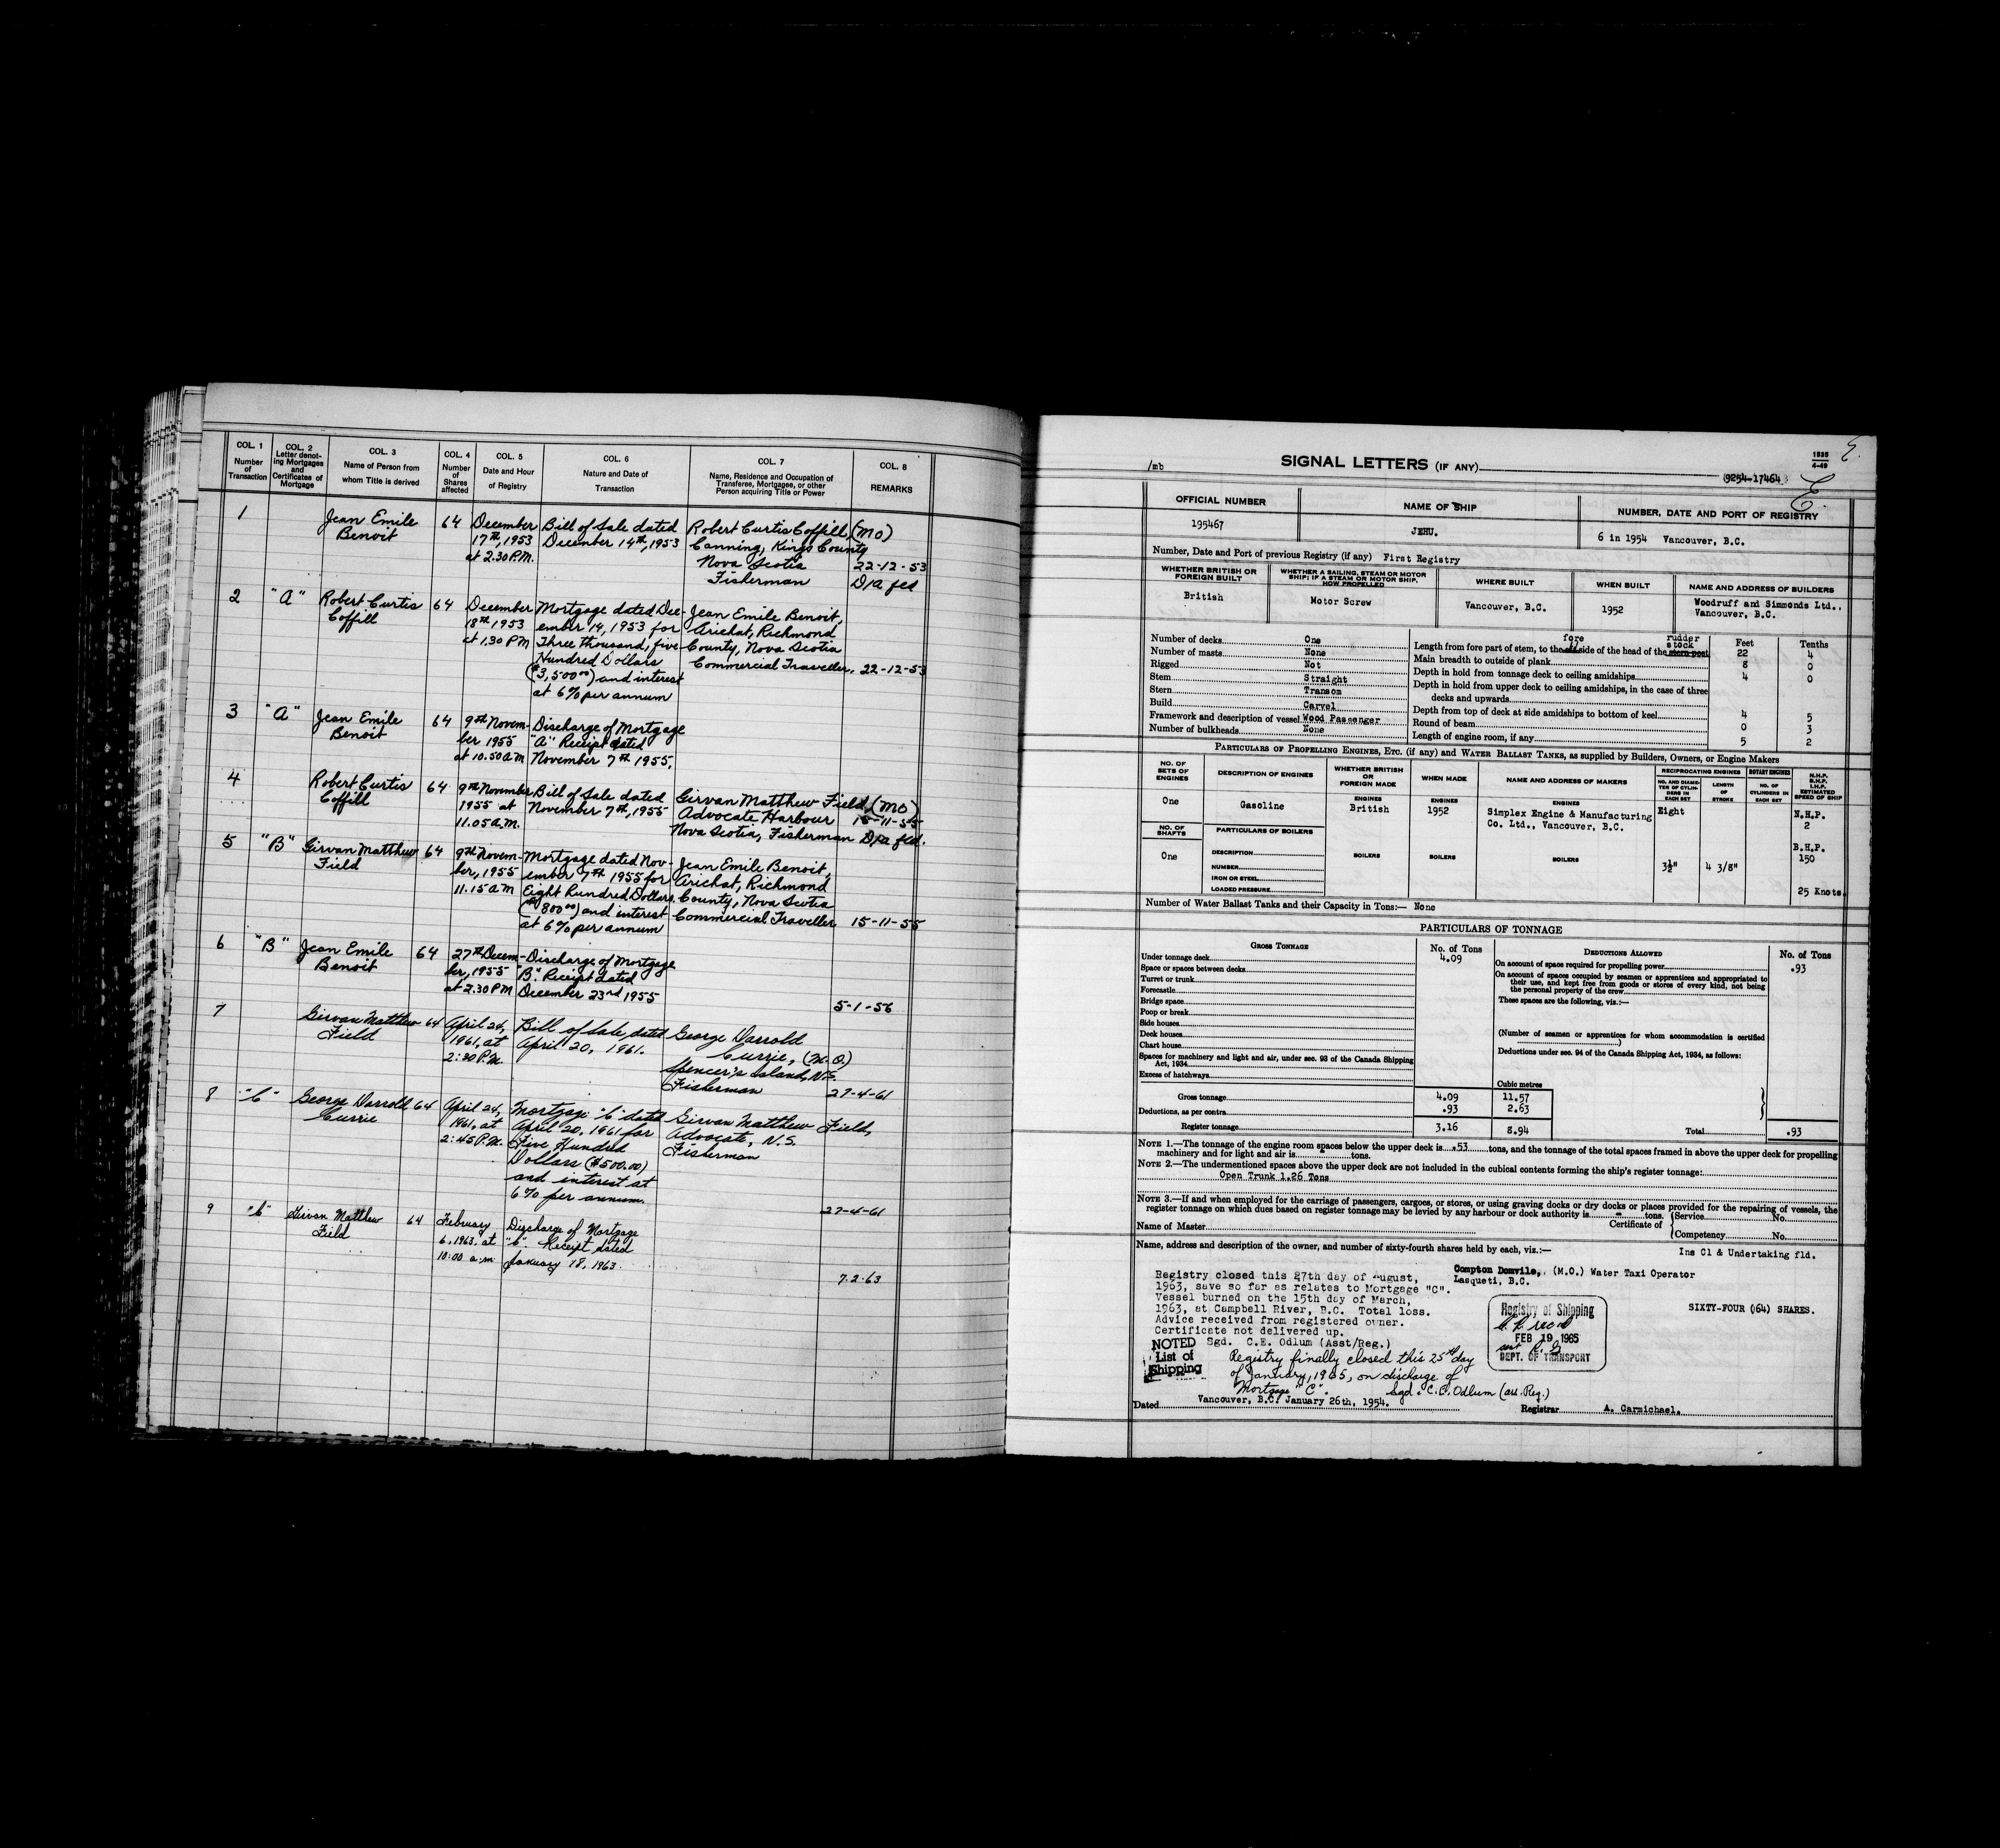 COL. 1
Number
of
Transaction
COL. 2
Letter denot-
ing Mortgages
and
Certificates of
Mortgage
COL. 3
Name of Person from
whom Title is derived
COL. 4
Number
of
Shares
affected
COL. 5
Date and Hour
of Registry
COL. 6
Nature and Date of
Transaction
COL. 7
Name, Residence and Occupation of
Transferee, Mortgagee, or other
Person acquiring Title or Power
COL. 8
REMARKS
1
Jean Emile
Benoit
64
December
17th, 1953
at 2.30 P.M.
Bill of Sale dated
December 14th, 1953
Robert Curtis Coffill, (MO)
Canning, Kings County
Nova Scotia
Fisherman
22-12-53
D/a fld
2
"A"
Robert Curtis
Coffill
64
December
18th 1953
at 1.30 PM
Mortgage dated Dec-
ember 14, 1953 for
Three thousand, five
Hundred Dollars
($3,500.00) and interest
at 6% per annum
Jean Emile Benoit,
Arichat, Richmond
County, Nova Scotia
Commercial Traveller.
22-12-53
3
"A"
Jean Emile
Benoit
64
9th Novem-
ber 1955
at 10.50 AM
Discharge of Mortgage
"A" Receipt dated
November 7th 1955.
4
Robert Curtis
Coffill
64
9th November
1955 at
11.05 A.M.
Bill of Sale dated
November 7th, 1955
Girvan Matthew Field, (MO)
Advocate Harbour
Nova Scotia, Fisherman
15-11-55
D/a fld.
5
"B"
Girvan Matthew
Field
64
9th Novem-
ber, 1955
11.15 AM
Mortgage dated Nov-
ember 7th 1955 for
Eight Hundred Dollars
($800.00) and interest
at 6% per annum
Jean Emile Benoit,
Arichat, Richmond
County, Nova Scotia
Commercial Traveller
15-11-55
6
"B"
Jean Emile
Benoit
64
27th Decem-
ber, 1955
at 2.30 PM
Discharge of Mortgage
"B". Receipt dated
December 23rd 1955
5-1-56
7
Girvan Matthew
Field
64
April 24,
1961, at
2:30 P.M.
Bill of Sale dated
April 20, 1961.
George Darrold
Currie, (M.O.)
Spencer's Island, N.S.
Fisherman
27-4-61
8
"C"
George Darrold
Currie
64
April 24,
1961, at
2:45 P.M.
Mortgage "C" dated
April 20, 1961 for
Five Hundred
Dollars ($500.00)
and interest at
6% per annum.
Girvan Matthew Field,
Advocate, N.S.
Fisherman
27-4-61
9
"C"
Girvan Matthew
Field
64
February
6, 1963. at
10:00 a.m.
Discharge of Mortgage
"C". Receipt dated
January 18, 1963.
7.2.63
/mb
SIGNAL LETTERS (IF ANY)
1935
4-49
9254-17464
OFFICIAL NUMBER
195467
NAME OF SHIP
JEHU.
NUMBER, DATE AND PORT OF REGISTRY
6 in 1954 Vancouver, B.C.
Number, Date and Port of previous Registry (if any) First Registry
WHETHER BRITISH OR
FOREIGN BUILT
British
WHETHER A SAILING, STEAM OR MOTOR
SHIP; IF A STEAM OR MOTOR SHIP,
HOW PROPELLED
Motor Screw
WHERE BUILT
Vancouver, B.C.
WHEN BUILT
1952
NAME AND ADDRESS OF BUILDERS
Woodruff and Simmonds Ltd.,
Vancouver, B.C.
Number of decks One
Number of masts None
Rigged Not
Stem Straight
Stern Transom
Build Carvel
Framework and description of vessel Wood Passenger
Number of bulkheads None
fore rudder
stock
Feet Tenths
Length from fore part of stem, to the aft side of the head of the stern post 22 4
Main breadth to outside of plank 8 0
Depth in hold from tonnage deck to ceiling amidships 4 0
Depth in hold from upper deck to ceiling amidships, in the case of three
decks and upwards
Depth from top of deck at side amidships to bottom of keel 4 5
Round of beam 0 3
Length of engine room, if any 5 2
PARTICULARS OF PROPELLING ENGINES, ETC. (if any) and WATER BALLAST TANKS, as supplied by Builders, Owners, or Engine Makers
NO. OF
SETS OF
ENGINES
One
NO. OF
SHAFTS
One
DESCRIPTION OF ENGINES
Gasoline
PARTICULARS OF BOILERS
DESCRIPTION
NUMBER
IRON OR STEEL
LOADED PRESSURE
WHETHER BRITISH
OR
FOREIGN MADE
ENGINES
British
BOILERS
WHEN MADE
ENGINES
1952
BOILERS
NAME AND ADDRESS OF MAKERS
ENGINES
Simplex Engine & Manufacturing
Co. Ltd., Vancouver, B.C.
BOILERS
RECIPROCATING ENGINES
NO. AND DIAME-
TER OF CYLIN-
DERS IN
EACH SET
Eight
3½"
LENGTH
OF
STROKE
4 3/8"
ROTARY ENGINES
NO. OF
CYLINDERS IN
EACH SET
N.H.P.
B.H.P.
I.H.P.
ESTIMATED
SPEED OF SHIP
N.H.P.
2
B.H.P.
150
25 Knots.
Number of Water Ballast Tanks and their Capacity in Tons:— None
PARTICULARS OF TONNAGE
GROSS TONNAGE
No. of Tons
Under tonnage deck 4.09
Space or spaces between decks
Turret or trunk
Forecastle
Bridge space
Poop or break
Side houses
Deck houses
Chart house
Spaces for machinery and light and air, under sec. 93 of the Canada Shipping
Act, 1934
Excess of hatchways
Cubic metres
Gross tonnage 4.09 11.57
Deductions, as per contra .93 2.63
Register tonnage 3.16 8.94
DEDUCTIONS ALLOWED
No. of Tons
On account of space required for propelling power .93
On account of spaces occupied by seamen or apprentices and appropriated to
their use, and kept free from goods or stores of every kind, not being
the personal property of the crew
These spaces are the following, viz.:—
(Number of seamen or apprentices for whom accommodation is certified
)
Deductions under sec. 94 of the Canada Shipping Act, 1934, as follows:
Total .93
NOTE 1.—The tonnage of the engine room spaces below the upper deck is .53 tons, and the tonnage of the total spaces framed in above the upper deck for propelling
machinery and for light and air is - tons.
NOTE 2.—The undermentioned spaces above the upper deck are not included in the cubical contents forming the ship's register tonnage:
Open Trunk 1.26 Tons
NOTE 3.—If and when employed for the carriage of passengers, cargoes, or stores, or using graving docks or dry docks or places provided for the repairing of vessels, the
register tonnage on which dues based on register tonnage may be levied by any harbour or dock authority is - tons.
Name of Master
Certificate of
Service No.
Competency No.
Name, address and description of the owner, and number of sixty-fourth shares held by each, viz.:—
Ins Cl & Undertaking fld.
Compton Domvile, (M.O.) Water Taxi Operator
Lasqueti, B.C.
SIXTY-FOUR (64) SHARES.
Registry closed this 27th day of August,
1963, save so far as relates to Mortgage "C".
Vessel burned on the 15th day of March,
1963, at Campbell River, B.C. Total loss.
Advice received from registered owner.
Certificate not delivered up.
Sgd. C.E. Odlum (Asst/Reg.)
NOTED
List of
Shipping
Registry of Shipping
FEB 19 1965
DEPT. OF TRANSPORT
Registry finally closed this 25th day
of January, 1965, on discharge of
Mortgage "C". Sgd. C.E. Odlum (ass. Reg.)
Dated Vancouver, B.C. January 26th, 1954.
Registrar A. Carmichael.